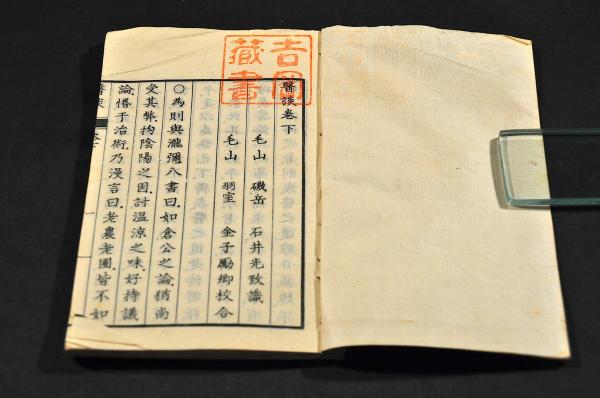 吉岡
藏書
醫談卷下
毛山 磯岳 石井光致識
毛山 羽室 金子勵卿校合
〇為則與瀧彌八書曰如倉公之論猶尚
受其弊拘陰陽之因討溫涼之味好持議
論惛于治術乃漫言曰老農老圃皆不如